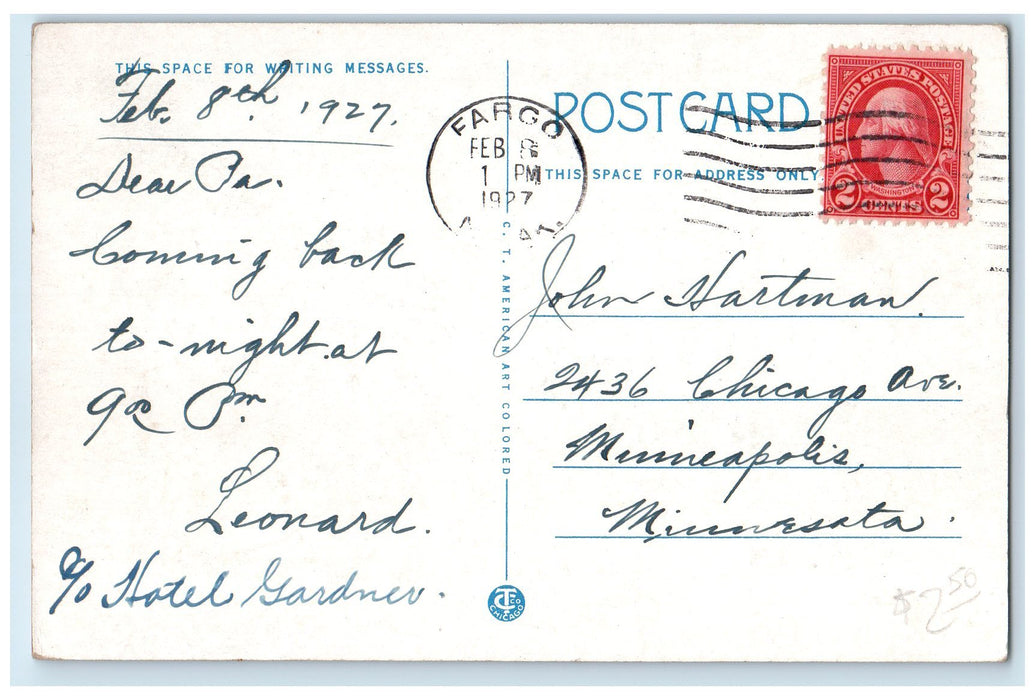 THIS SPACE FOR WRITING MESSAGES.
Feb. 8th, 1927.
Dear Pa.
Coming back
to-night at
9 00 Pm.
Leonard.
c/o Hotel Gardner.
FARGO
FEB 8
1 PM
1927
C. T. AMERICAN ART COLORED
CT CO
CHICAGO
POST CARD
THIS SPACE FOR ADDRESS ONLY
UNITED STATES POSTAGE
WASHINGTON
2 CENTS 2
John Hartman.
2436 Chicago Ave.
Minneapolis,
Minnesota.